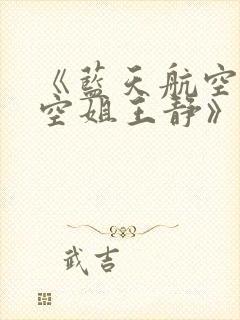 《蓝天航空
空姐王静》
武吉